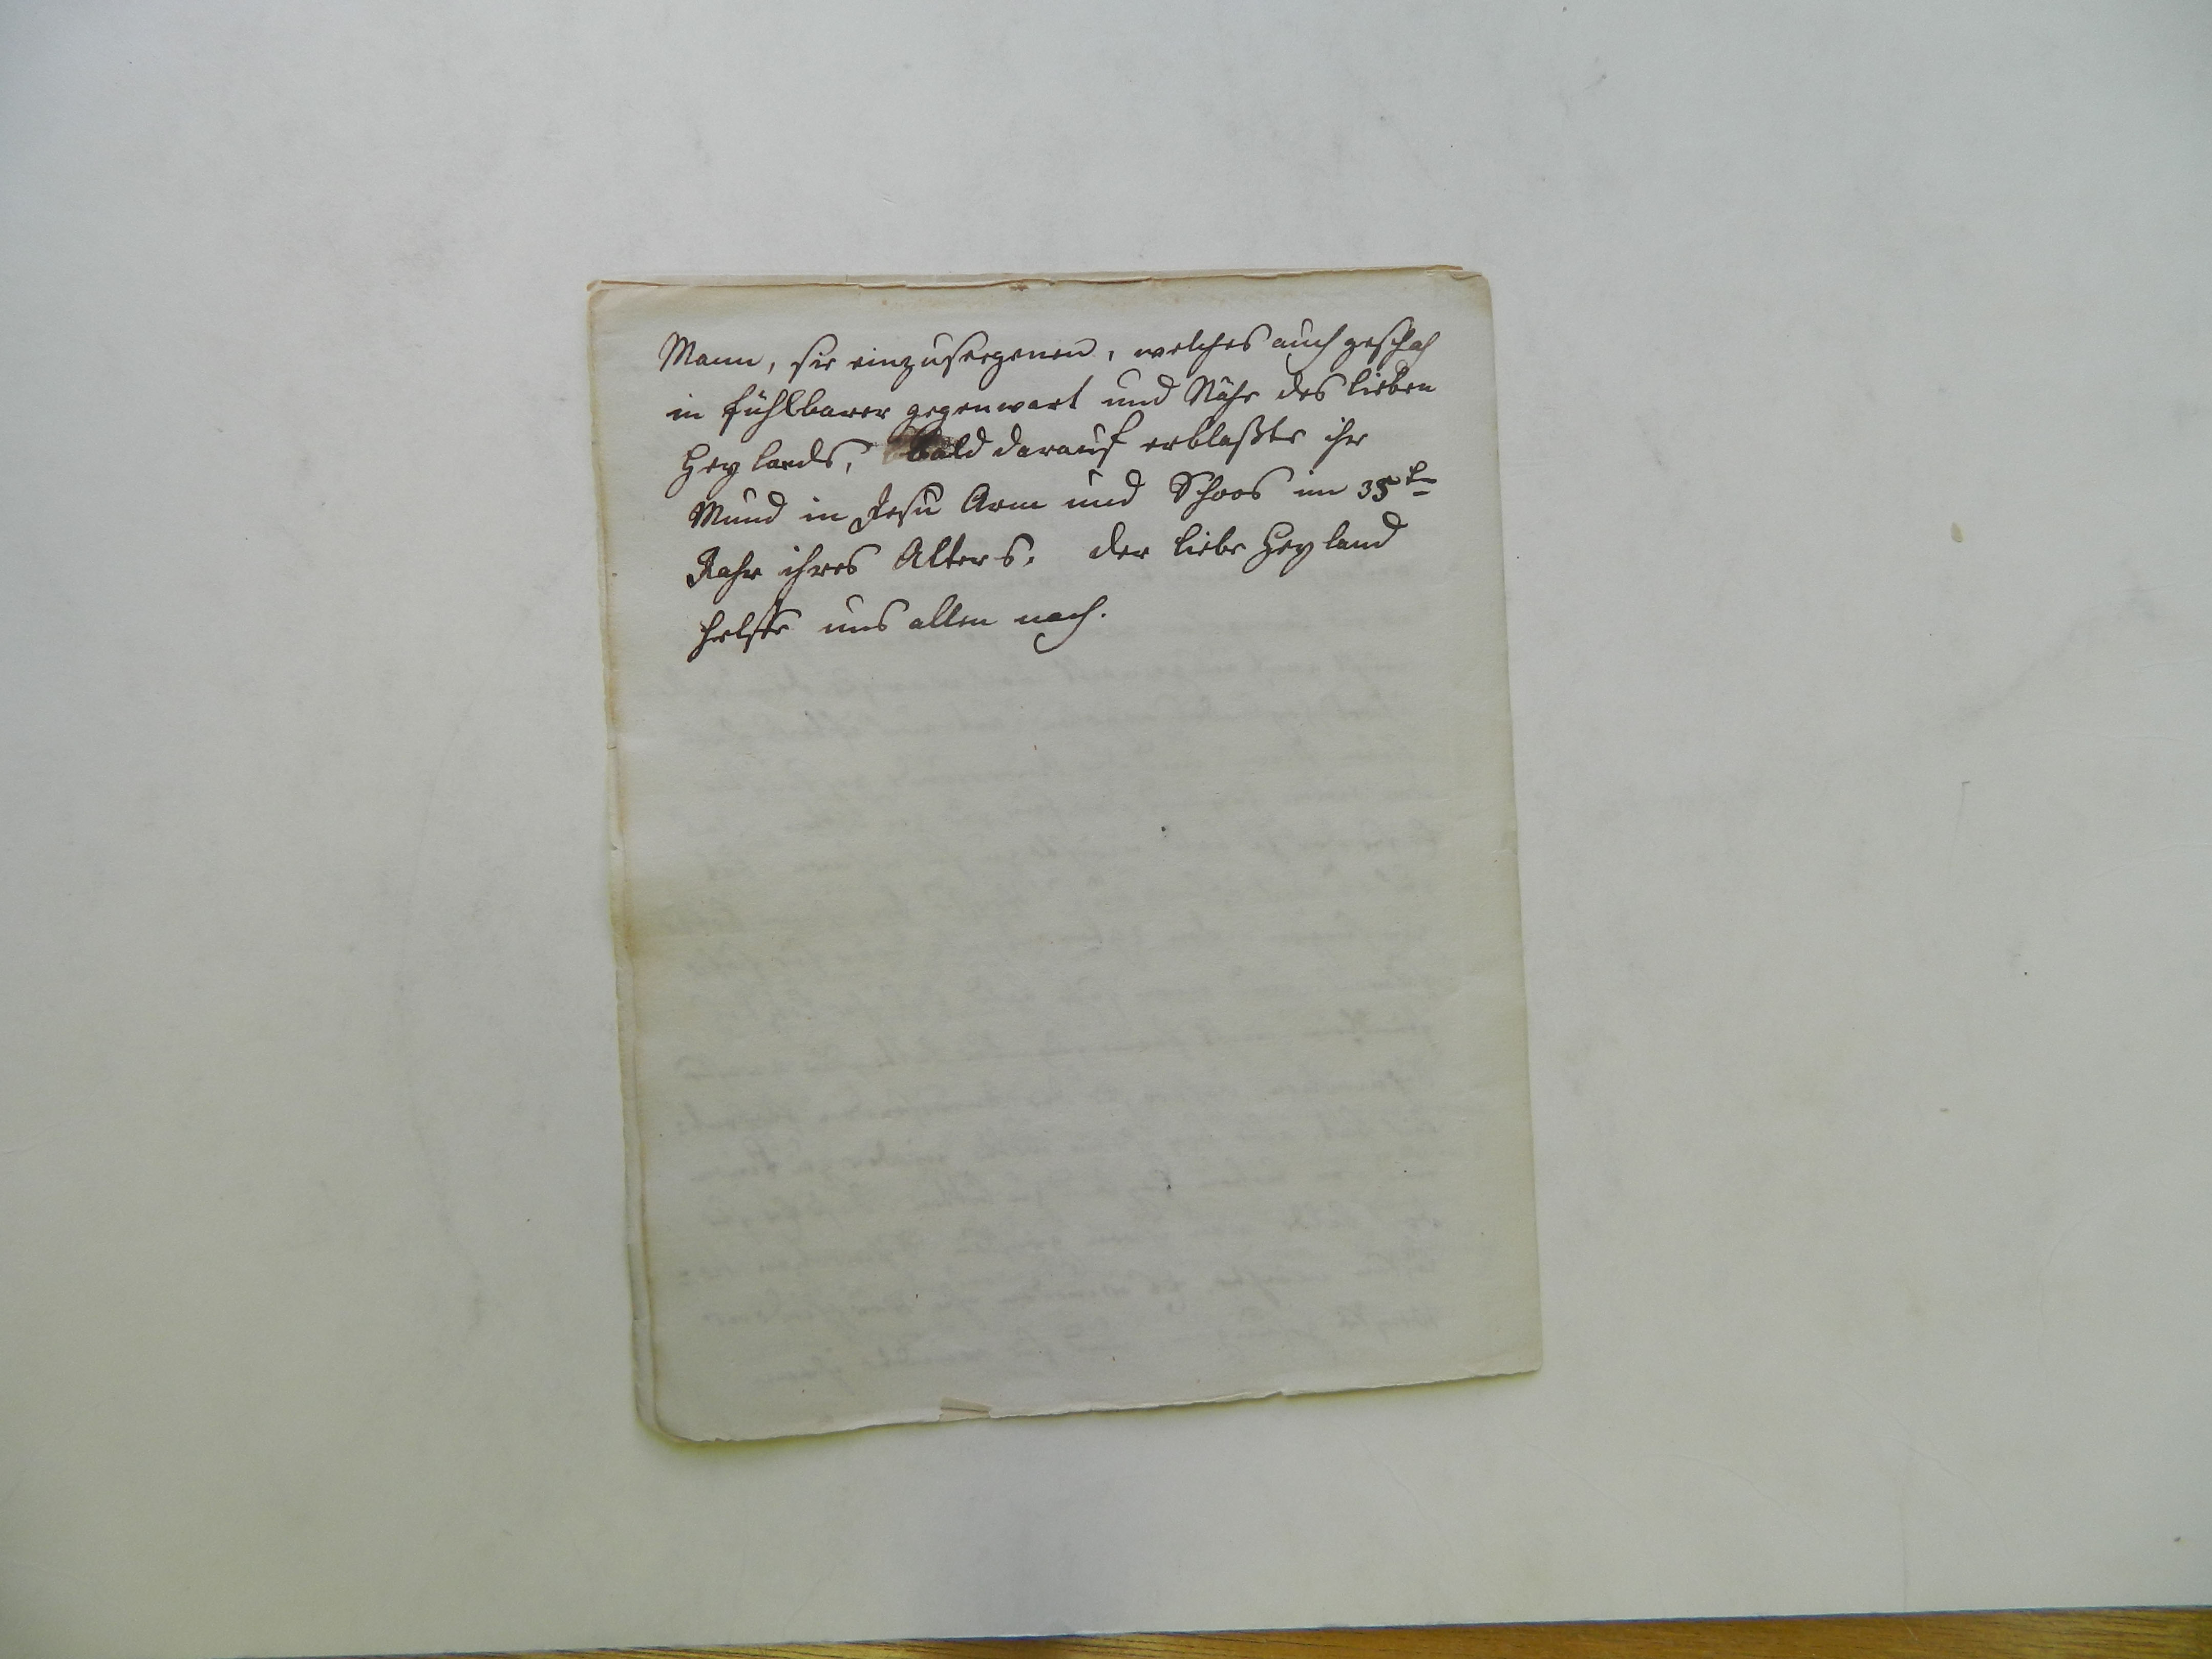 Mann, sie einzuseegenen, welches auch geschah
in fühlbarer gegenwart und Nähe des lieben
Heylands, bald darauf erblaßte ihr
Mund in Jesu Arm und Schoos im 35ten
Jahr ihres Alters. der liebe Heyland
helffe uns allen nach.